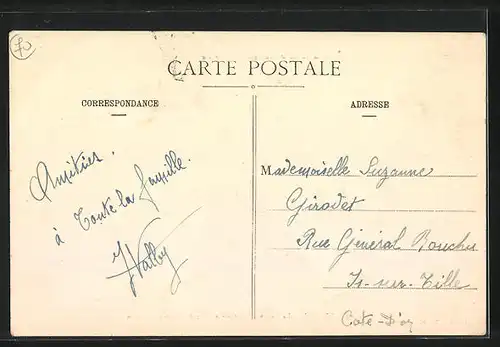 70
CARTE POSTALE
CORRESPONDANCE
ADRESSE
Amitiés.
à toute la famille.
Mademoiselle Suzanne
Girodet
Rue Général Bouchu
Is-sur-Tille
Cote-d'or